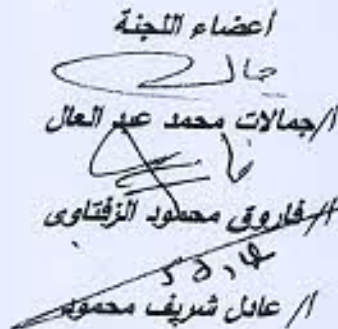 أعضاء اللجنة
أ/جمالات محمد عبد العال
أ/فاروق محمود الزفتاوى
أ/ عادل شريف محمود